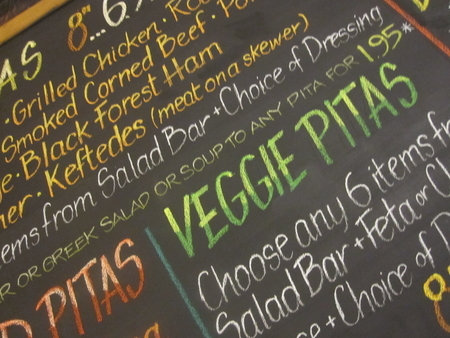 AS 8"...6
· Grilled Chicken · Roa
Smoked Corned Beef · Po
· Black Forest Ham
· Keftedes (meat on a skewer)
items from Salad Bar + Choice of Dressing
OR GREEK SALAD OR SOUP TO ANY PITA FOR 1.95*
VEGGIE PITAS
Choose any 6 items fr
Salad Bar + Feta or C
+ Choice of D
PITAS
8